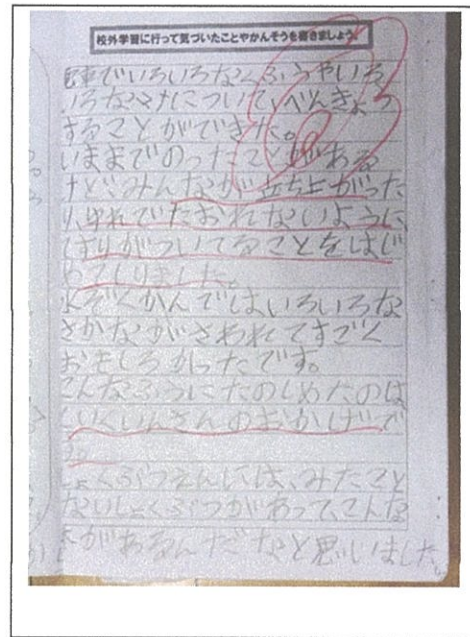 校外学習に行って気づいたことやかんそうを書きましょう。
電車でいろいろなくふうやいろ
いろなマナーについて、べんきょう
することができた。
いままでのったことがある
けどみんなが立ち上がった
り、ゆれでたおれないように、
てすりがついてることをはじ
めてしりました。
水ぞくかんではいろいろな
さかながさわれてすごく
おもしろかったです。
こんなふうにたのしめたのは
しいくいんさんのおかげで
す。
しょくぶつえんには、みたこと
ないしょくぶつがあって、こんな
があるんだなと思いました。